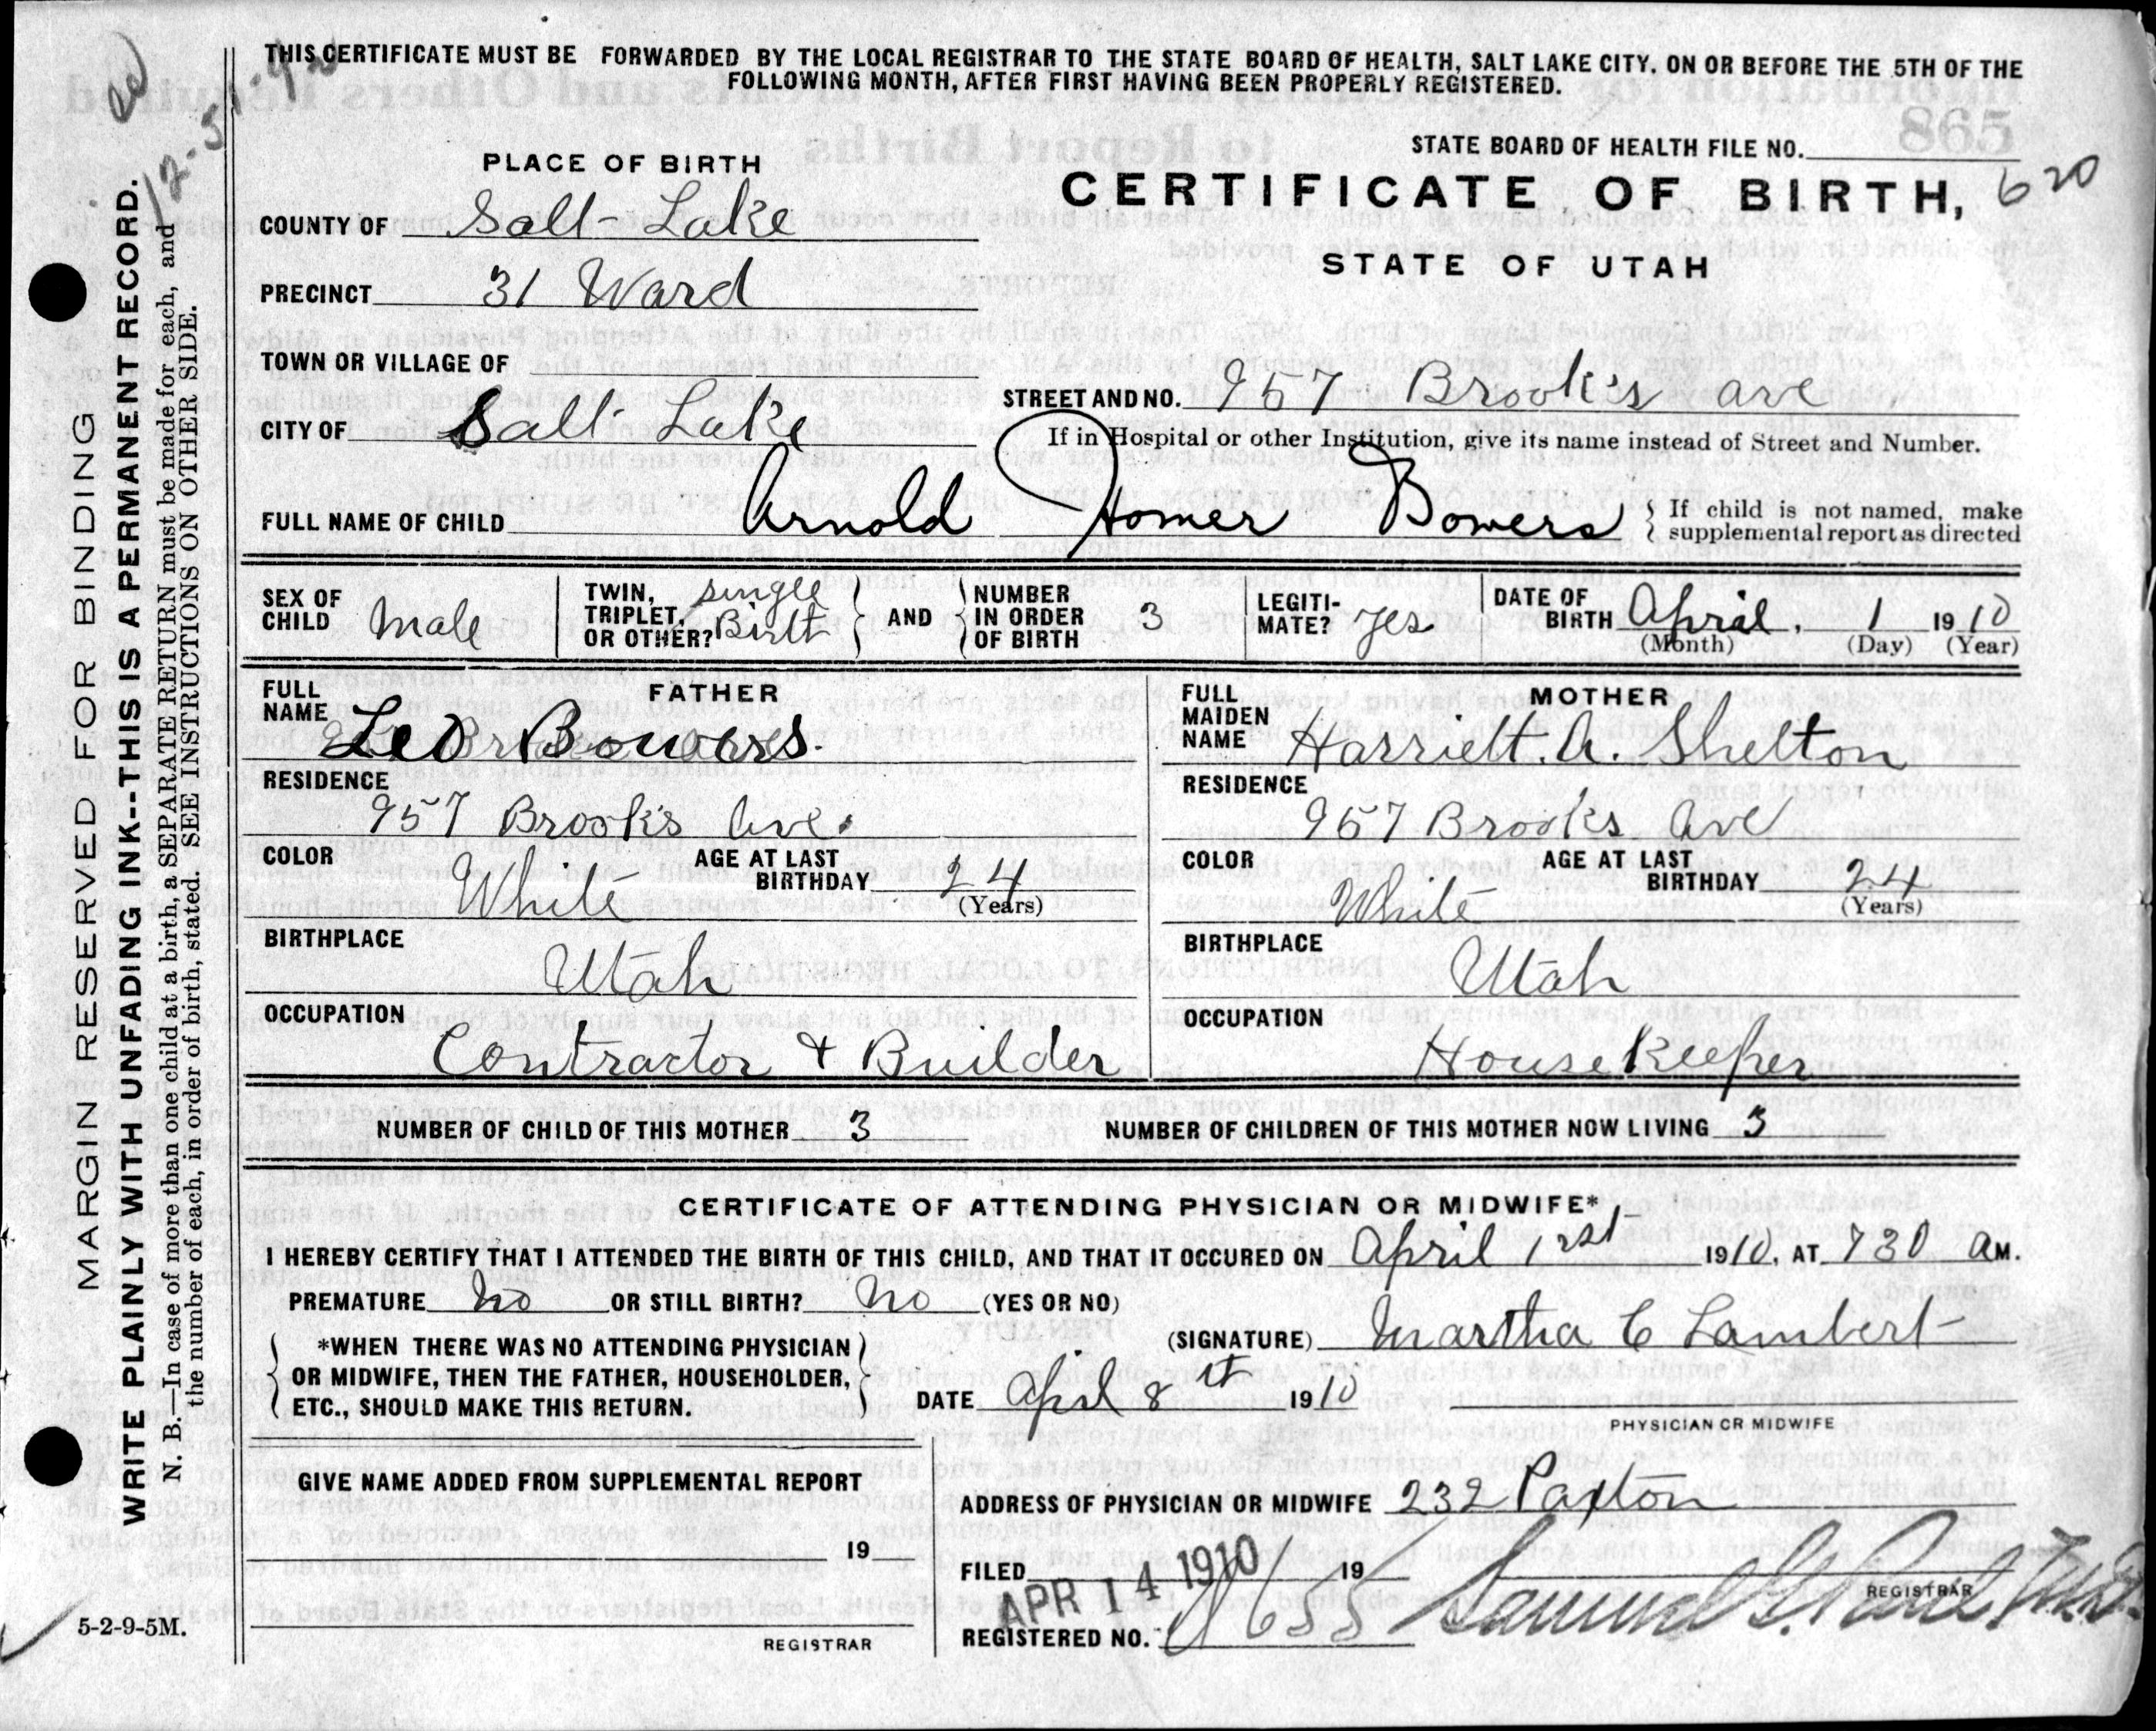 THIS CERTIFICATE MUST BE FORWARDED BY THE LOCAL REGISTRAR TO THE STATE BOARD OF HEALTH, SALT LAKE CITY, ON OR BEFORE THE 5TH OF THE
FOLLOWING MONTH, AFTER FIRST HAVING BEEN PROPERLY REGISTERED.
865
STATE BOARD OF HEALTH FILE NO.
620
PLACE OF BIRTH
CERTIFICATE OF BIRTH,
STATE OF UTAH
COUNTY OF Salt Lake
PRECINCT 31 Ward
TOWN OR VILLAGE OF
STREET AND NO. 957 Brook's ave
CITY OF Salt Lake
If in Hospital or other Institution, give its name instead of Street and Number.
FULL NAME OF CHILD Arnold Homer Bowers
If child is not named, make
supplemental report as directed
SEX OF CHILD male
TWIN, TRIPLET, OR OTHER? single Birth
AND
NUMBER IN ORDER OF BIRTH 3
LEGITI-MATE? yes
DATE OF BIRTH April, 1 1910
(Month) (Day) (Year)
FATHER
FULL NAME Leo Bowers.
RESIDENCE
957 Brooks Ave.
COLOR White
AGE AT LAST BIRTHDAY 24
(Years)
BIRTHPLACE
Utah
OCCUPATION
Contractor & Builder
MOTHER
FULL MAIDEN NAME Harriett. A. Shelton
RESIDENCE
957 Brooks Ave
COLOR White
AGE AT LAST BIRTHDAY 24
(Years)
BIRTHPLACE
Utah
OCCUPATION
HouseKeeper
NUMBER OF CHILD OF THIS MOTHER 3 NUMBER OF CHILDREN OF THIS MOTHER NOW LIVING 3
CERTIFICATE OF ATTENDING PHYSICIAN OR MIDWIFE*
I HEREBY CERTIFY THAT I ATTENDED THE BIRTH OF THIS CHILD, AND THAT IT OCCURED ON April 1st 1910, AT 730 AM.
PREMATURE no OR STILL BIRTH? no (YES OR NO)
*WHEN THERE WAS NO ATTENDING PHYSICIAN
OR MIDWIFE, THEN THE FATHER, HOUSEHOLDER,
ETC., SHOULD MAKE THIS RETURN.
(SIGNATURE) Martha C Lambert
DATE April 8th 1910
PHYSICIAN OR MIDWIFE
GIVE NAME ADDED FROM SUPPLEMENTAL REPORT
19
REGISTRAR
ADDRESS OF PHYSICIAN OR MIDWIFE 232 Paxton
FILED APR 14 1910 19
REGISTRAR
REGISTERED NO. 655
5-2-9-5M.
MARGIN RESERVED FOR BINDING
WRITE PLAINLY WITH UNFADING INK--THIS IS A PERMANENT RECORD.
N. B.—In case of more than one child at a birth, a SEPARATE RETURN must be made for each, and
the number of each, in order of birth, stated. SEE INSTRUCTIONS ON OTHER SIDE.